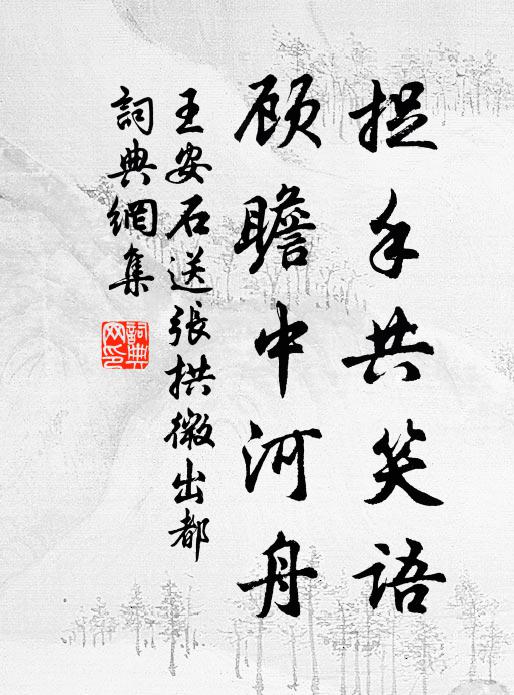 捉手共笑語
顾瞻中河舟
王安石送張拱微出都
詞典網集
詞典網印